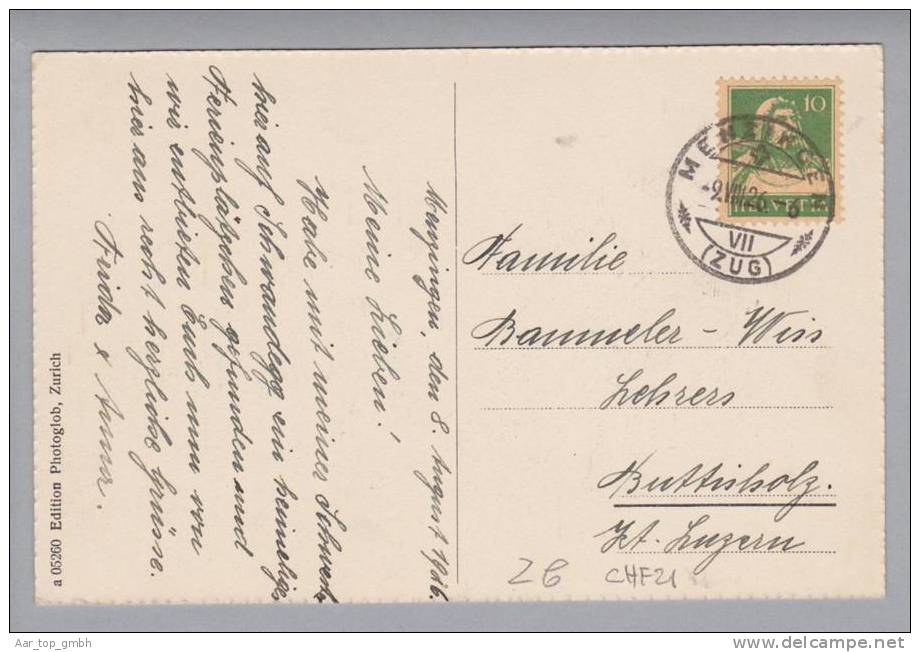 Menzingen, den 8. August 1926.
Meine Lieben!
Habe mit meiner Schwester
hier auf Schwandegg ein heimeliges
Ferienplätzchen gefunden und
wir entbieten Euch nun von
hier aus recht herzliche Grüsse.
Frida & Anna.
a 05260 Edition Photoglob, Zurich
10
HELVETIA
MENZINGEN
-9.VIII.26.-6
VII
(ZUG)
Familie
Bammeler - Wiss
Lehrers
Buttisholz.
Kt. Luzern
Z6 CHF21
Aar_top_gmbh
www.delcampe.net